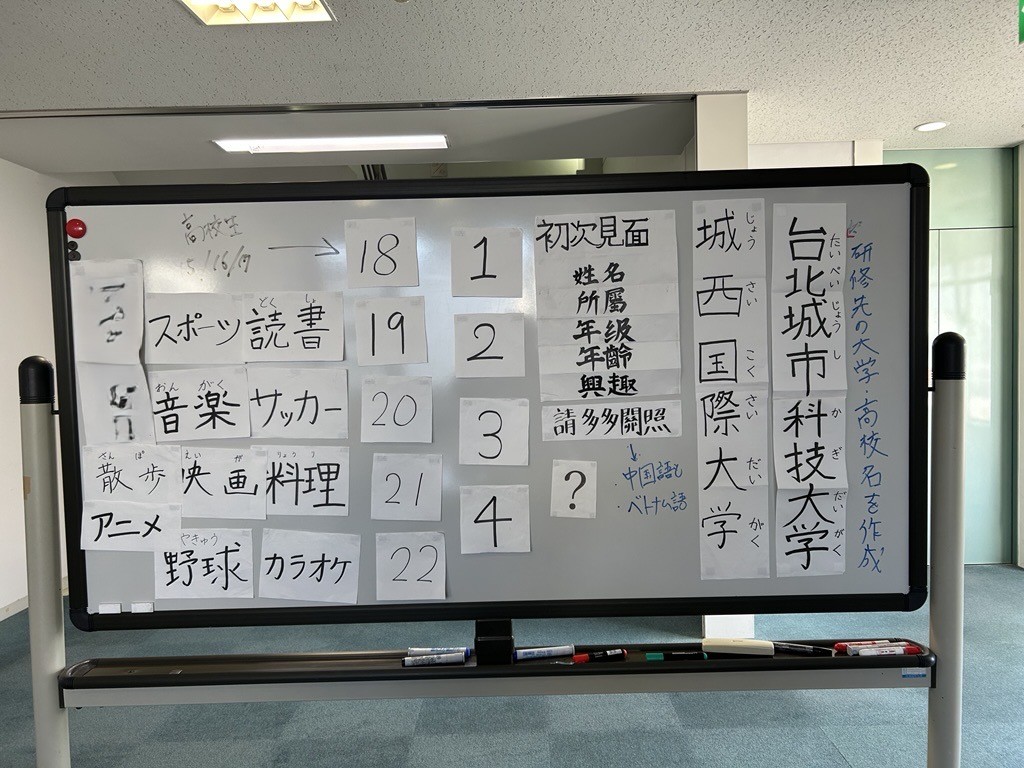 高校生
15/16/17
→
18
19
20
21
22
1
2
3
4
スポーツ
読書
どくしょ
音楽
おんがく
サッカー
散歩
さんぽ
映画
えいが
料理
りょうり
アニメ
野球
やきゅう
カラオケ
初次見面
姓名
所屬
年級
年齡
興趣
請多多關照
?
↓
・中国語と
・ベトナム語
城西国際大学
じょうさいこくさいだいがく
台北城市科技大学
たいぺいじょうしかぎだいがく
研修先の大学、高校名を作成